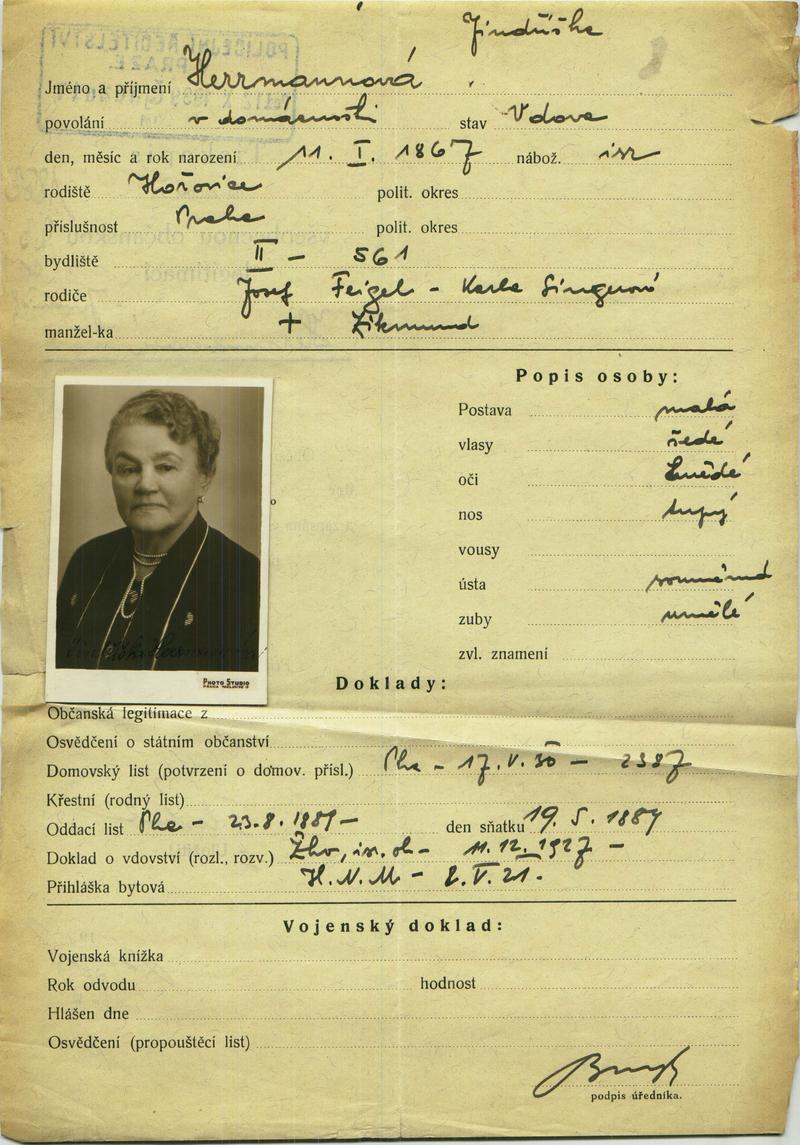 Jindřiška
Jméno a příjmení Herrmannová
povolání v domácnosti stav Vdova
den, měsíc a rok narození 11. I. 1867 nábož. isr
rodiště Hořovice polit. okres
příslušnost Praha polit. okres
bydliště II – 561
rodiče Josef Feigel – Karla Singerová
manžel-ka + Zikmund
Popis osoby:
Postava malá
vlasy šedé
oči hnědé
nos tupý
vousy
ústa souměrná
zuby umělé
zvl. znamení
PHOTO STUDIO
Doklady:
Občanská legitimace z
Osvědčení o státním občanství
Domovský list (potvrzení o domov. přísl.) Pha – 17. V. 30 – 2387
Křestní (rodný list)
Oddací list Pha – 23. 8. 1889 – den sňatku 19. 5. 1889
Doklad o vdovství (rozl., rozv.) 11. 12. 1927 –
Přihláška bytová H. N. M – 2. V. 21.
Vojenský doklad:
Vojenská knížka
Rok odvodu hodnost
Hlášen dne
Osvědčení (propouštěcí list)
podpis úředníka.